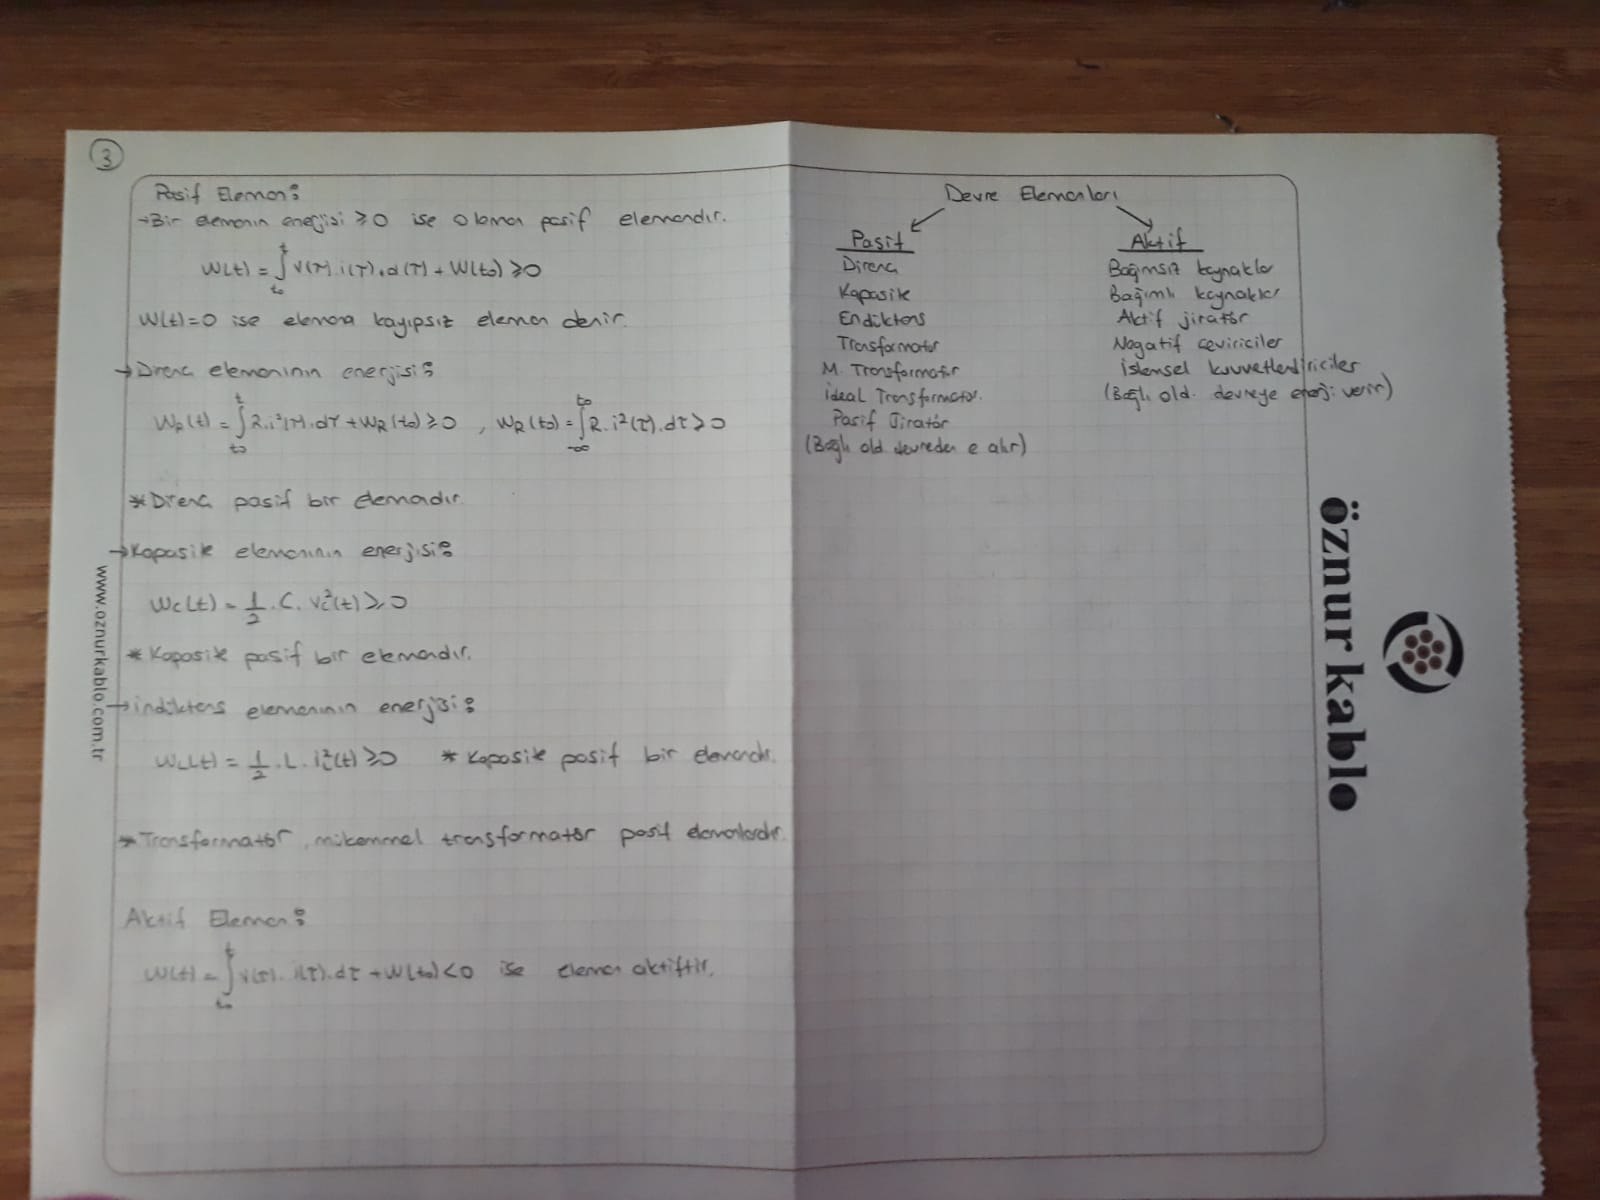 3
Pasif Eleman:
→Bir elemanın enerjisi ≥0 ise o eleman pasif elemandır.
W(t) = ∫_{t0}^{t} V(τ).i(τ).d(τ) + W(t0) ≥ 0
W(t)=0 ise elemana kayıpsız eleman denir.
→Direnç elemanının enerjisi:
WR(t) = ∫_{t0}^{t} R.i²(τ).dτ + WR(t0) ≥ 0 , WR(t0) = ∫_{-∞}^{t0} R.i²(τ).dτ ≥ 0
*Direnç pasif bir elemadır.
→Kapasite elemanının enerjisi:
WC(t) = 1/2 . C. Vc²(t) ≥ 0
*Kapasite pasif bir elemandır.
→indiktans elemanının enerjisi:
WL(t) = 1/2 . L. iL²(t) ≥ 0 *Kapasite pasif bir elemandır.
*Transformatör, mükemmel transformatör pasif elemanlardır.
Aktif Eleman:
W(t) = ∫_{t0}^{t} V(τ). i(τ).dτ + W(t0) < 0 ise eleman aktiftir.
Devre Elemanları
Pasif
Direnç
Kapasite
Endiktans
Transformatör
M. Transformatör
ideal Transformatör.
Pasif Jiratör
(Bağlı old. devreden e alır)
Aktif
Bağımsız kaynaklar
Bağımlı kaynaklar
Aktif jiratör
Negatif çeviriciler
İşlemsel kuvvetlendiriciler
(Bağlı old. devreye enerji verir)
www.oznurkablo.com.tr
öznur kablo